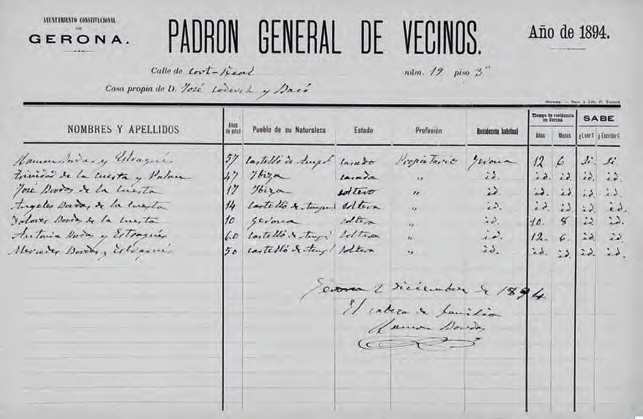 AYUNTAMIENTO CONSTITUCIONAL
DE
GERONA.
PADRON GENERAL DE VECINOS.
Año de 1894.
Calle de Cort-Real núm. 19 piso 3º
Casa propia de D. José y
NOMBRES Y APELLIDOS Años de edad Pueblo de su Naturaleza Estado Profesión Residencia habitual Tiempo de residencia en Gerona Años Meses SABE ¿Leer? ¿Escribir?
Ramon Bordas y Estragués 57 Castelló de Amp. casado Propietario Gerona 12 6 Si Si
Trinidad de la Cuesta y 47 Ibiza casada " id. id. id. id. id.
José Bordas de la Cuesta 17 Ibiza soltero " id. id. id. id. id.
Angeles Bordas de la Cuesta 14 Castelló de Amp. soltera " id. id. id. id. id.
Dolores Bordas de la Cuesta 10 Gerona soltera " id. 10 8 id. id.
Antonia Bordas y Estragués 60 Castelló de Amp. soltera " id. 12 6 id. id.
Mercedes Bordas y Estragués 50 Castelló de Amp. soltera " id. id. id. id. id.
Gerona 2 diciembre de 1894
El cabeza de familia
Ramon Bordas